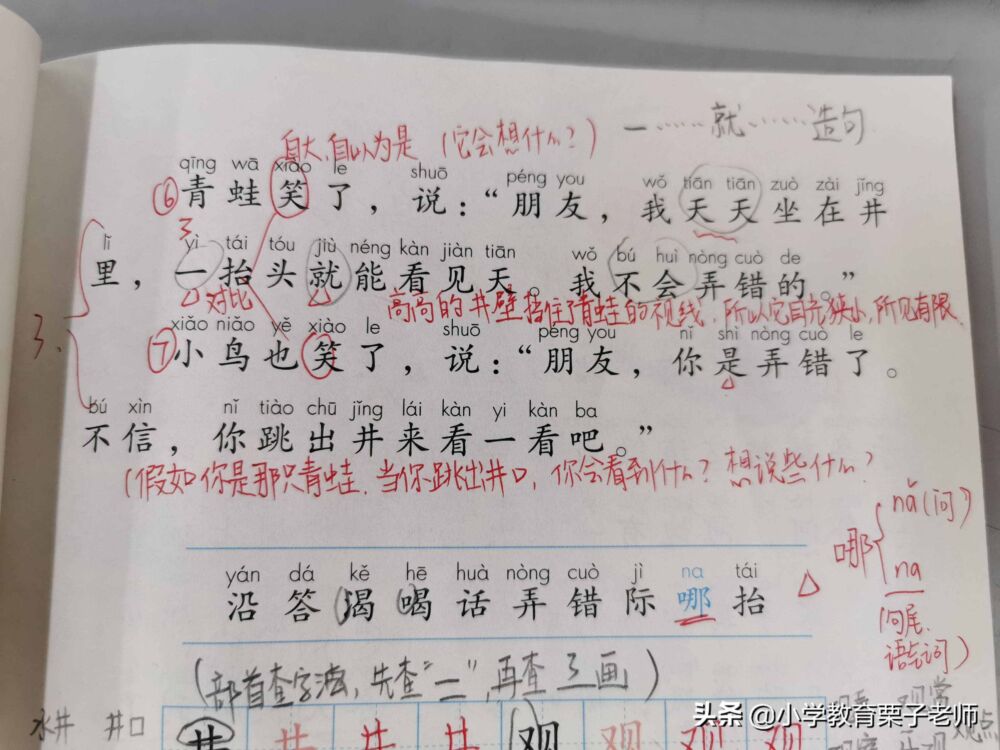 一……就……造句
自大,自以为是(它会想什么?)
qīng wā xiào le shuō péng you wǒ tiān tiān zuò zài jǐng
⑥青蛙笑了,说:“朋友,我天天坐在井
3
lǐ yì tái tóu jiù néng kàn jiàn tiān wǒ bú huì nòng cuò de
里,一抬头就能看见天。我不会弄错的。”
对比
高高的井壁挡住了青蛙的视线,所以它目光狭小,所见有限.
3.
xiǎo niǎo yě xiào le shuō péng you nǐ shì nòng cuò le
⑦小鸟也笑了,说:“朋友,你是弄错了。
bú xìn nǐ tiào chū jǐng lái kàn yi kàn ba
不信,你跳出井来看一看吧。”
(假如你是那只青蛙,当你跳出井口,你会看到什么?想说些什么?
yán dá kě hē huà nòng cuò jì na tái
沿答渴喝话弄错际哪抬
哪
nǎ(问)
na
(句尾、
语气词)
(部首查字法,先查“一”,再查三画)
水井 井口
井 井 井 井 观 观 观 观
观点
头条 @小学教育栗子老师